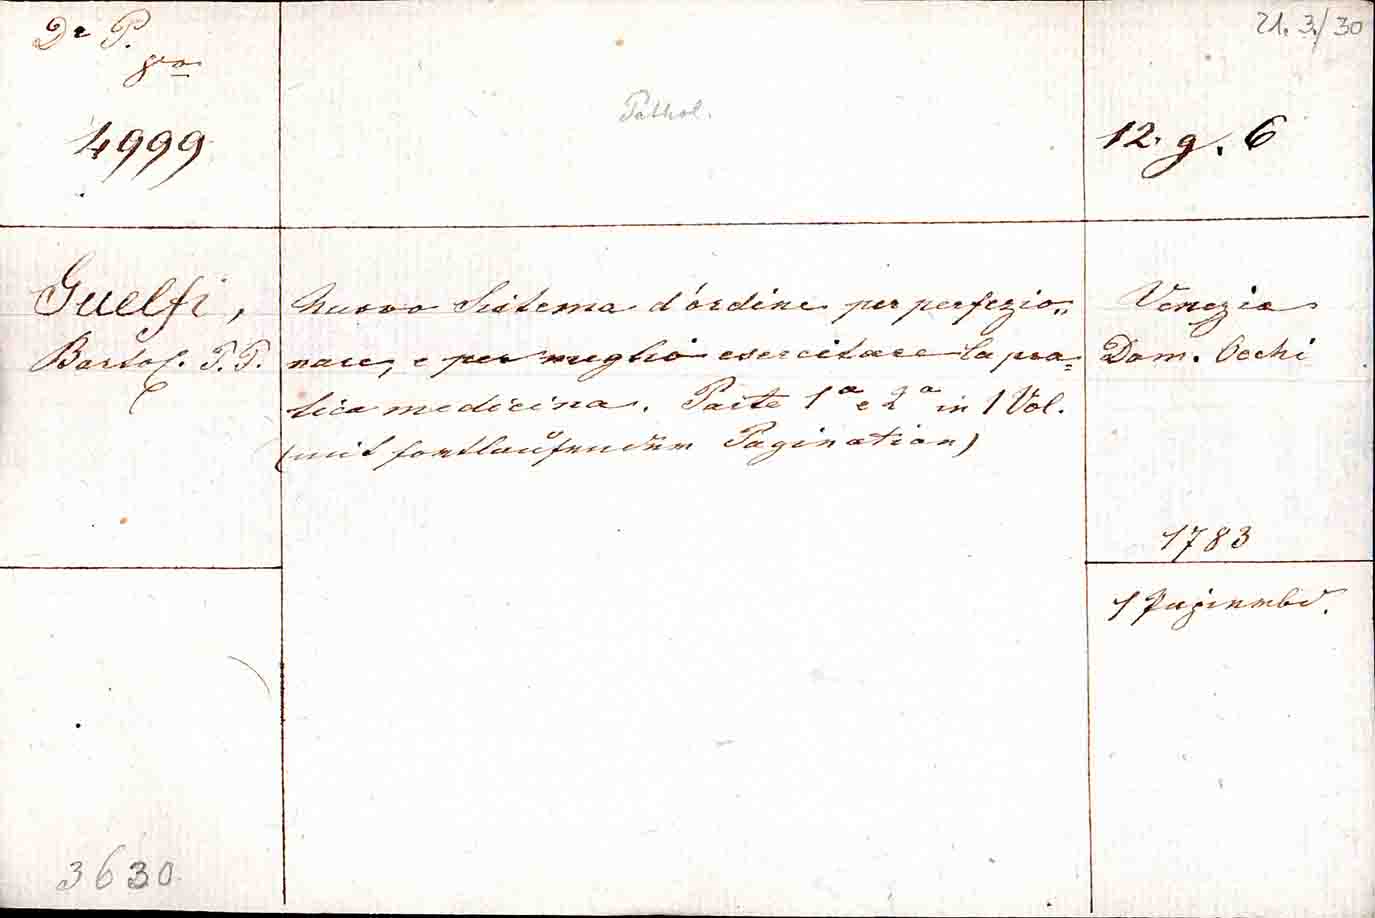 De P.
8vo
4999
Pathol.
21. 3./30
12. g. 6
Guelfi,
Bartol. P. P.
Nuovo Sistema d'ordine per perfezio„
nare, e per meglio esercitare la pra=
tica medicina. Parte 1a e 2a in 1 Vol.
(mit fortlaufender Pagination)
Venezia
Dom. Occhi
1783
1 Pappenbd.
3630